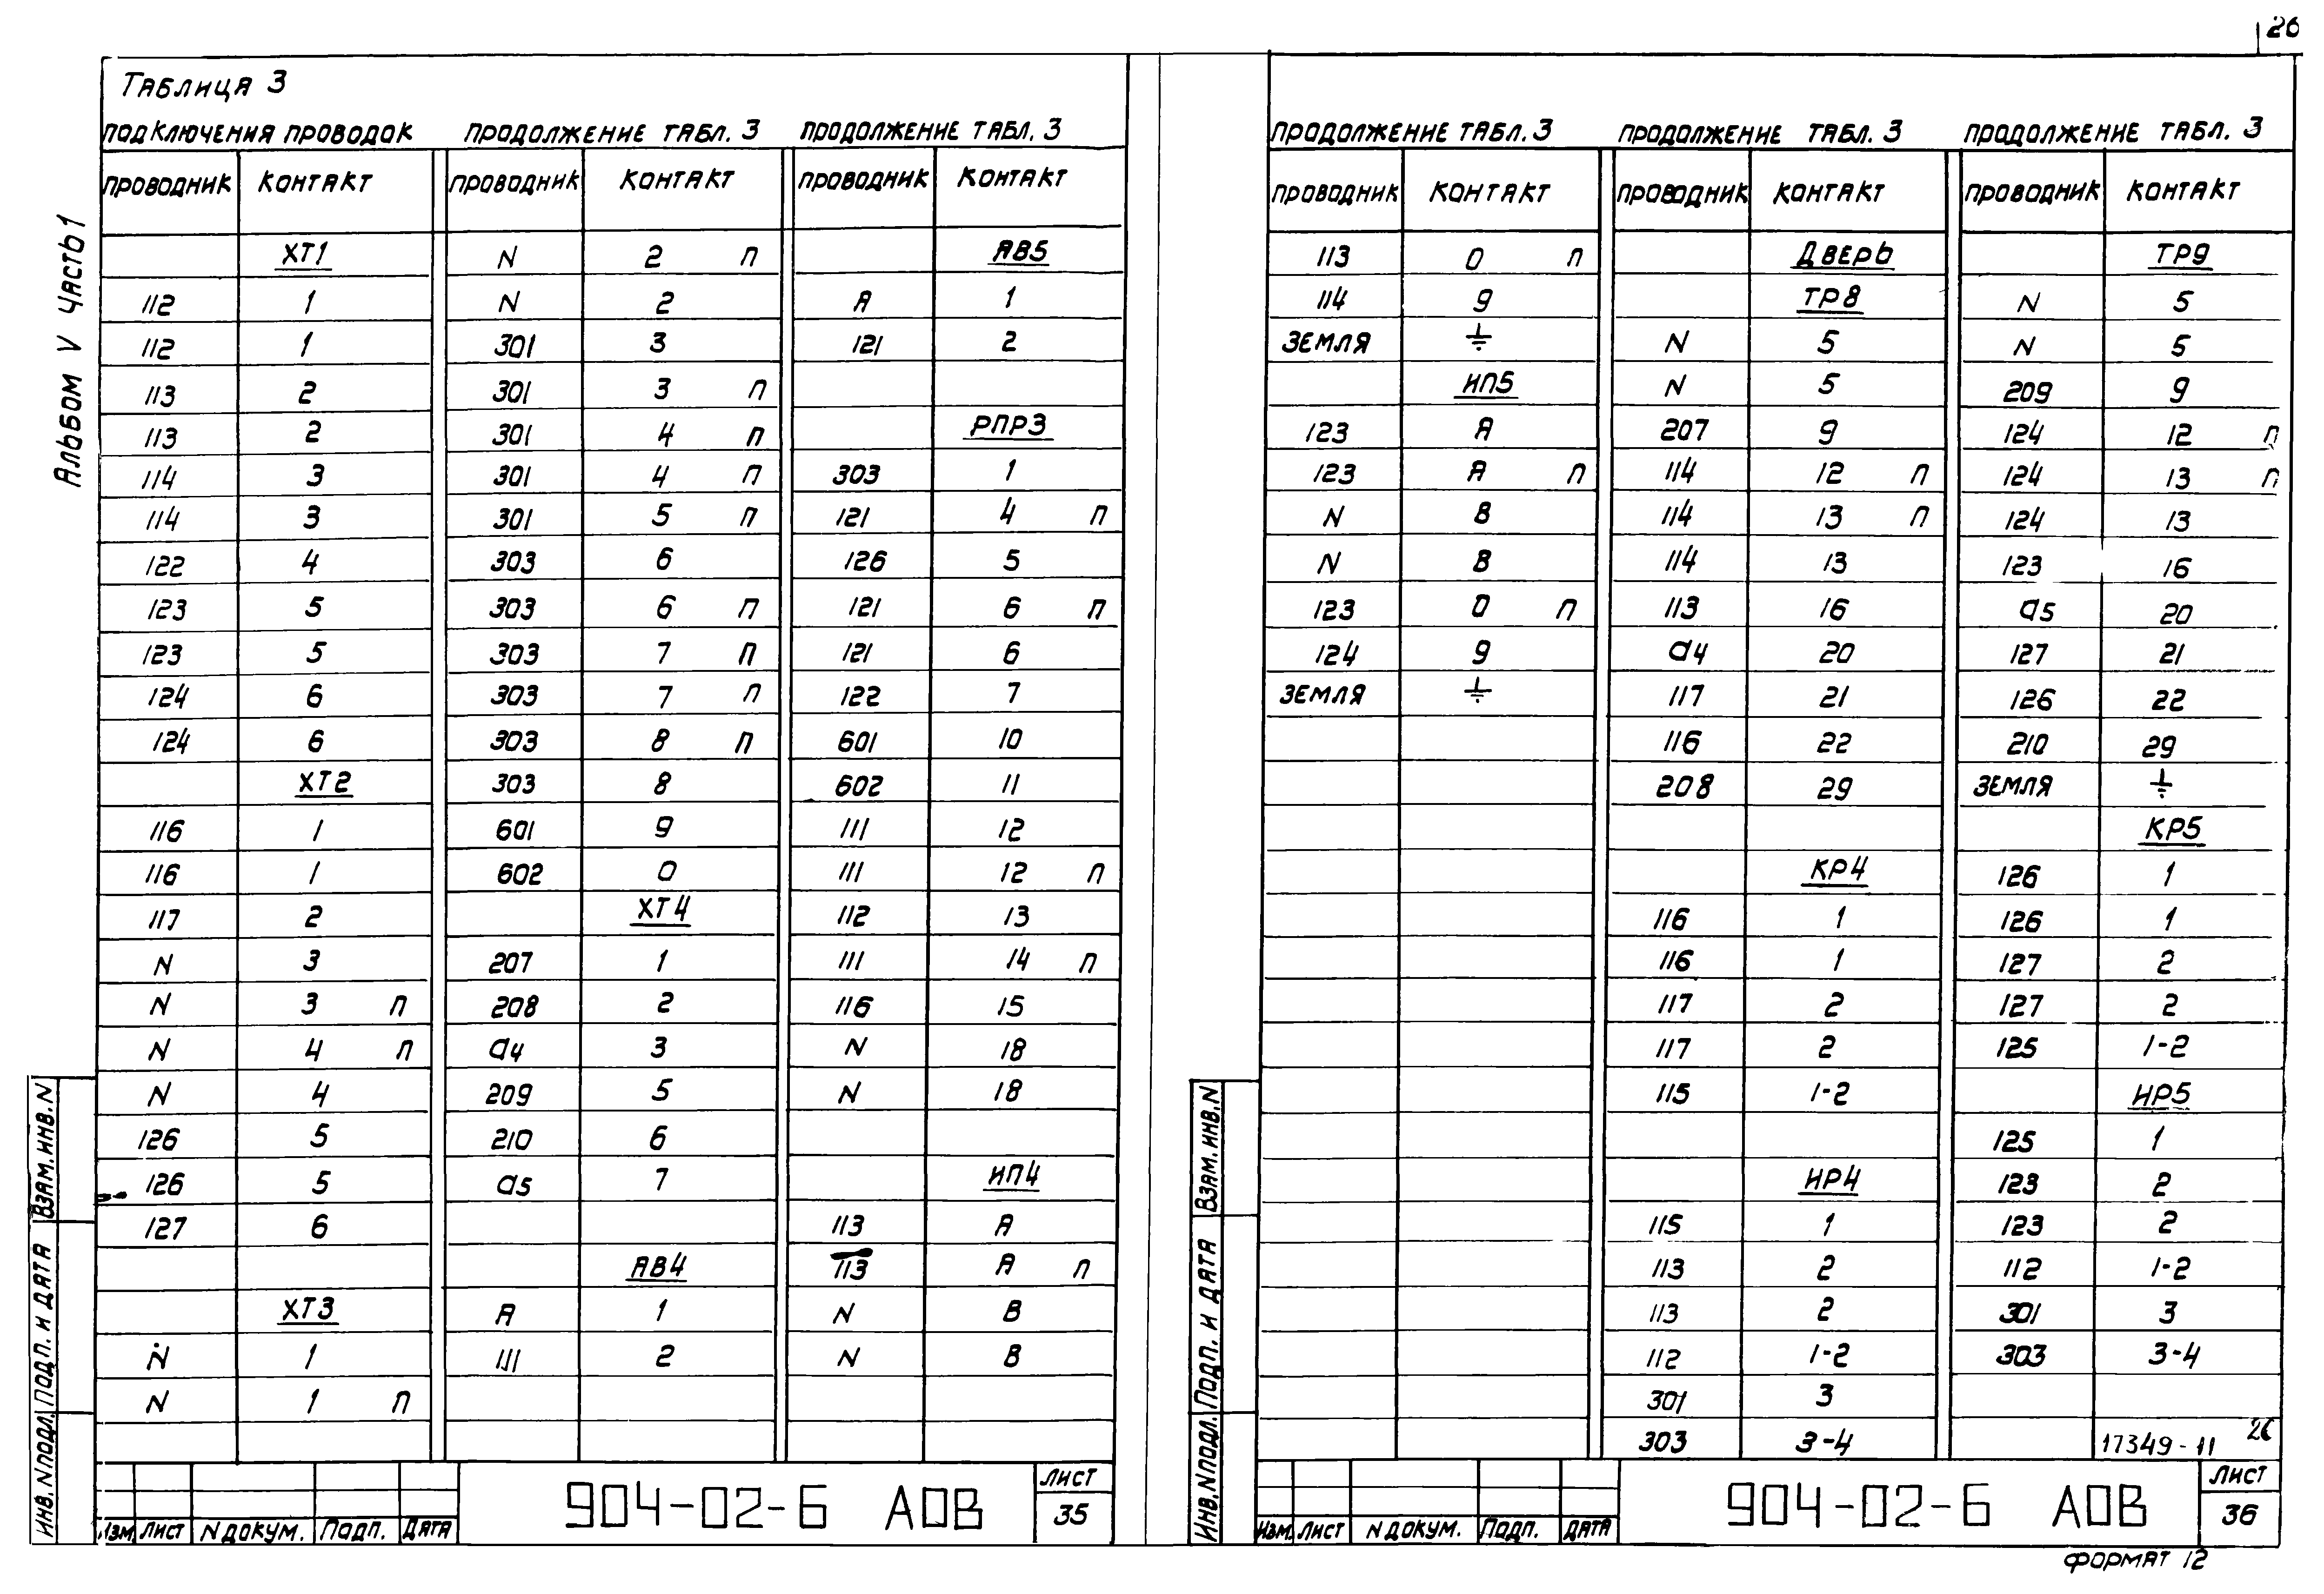 26
Альбом V Часть 1
Таблица 3
подключения проводок
проводник контакт
ХТ1
112 1
112 1
113 2
113 2
114 3
114 3
122 4
123 5
123 5
124 6
124 6
ХТ2
116 1
116 1
117 2
N 3
N 3 п
N 4 п
N 4
126 5
126 5
127 6
ХТ3
N 1
N 1 п
продолжение табл. 3
проводник контакт
N 2 п
N 2
301 3
301 3 п
301 4 п
301 4 п
301 5 п
303 6
303 6 п
303 7 п
303 7 п
303 8 п
303 8
601 9
602 0
ХТ4
207 1
208 2
а4 3
209 5
210 6
а5 7
АВ4
А 1
111 2
продолжение табл. 3
проводник контакт
АВ5
А 1
121 2
РПР3
303 1
121 4 п
126 5
121 6 п
121 6
122 7
601 10
602 11
111 12
111 12 п
112 13
111 14 п
116 15
N 18
N 18
ИП4
113 А
113 А п
N В
N В
Взам. инв. N
Подп. и дата
Инв. N подл.
Изм Лист N докум. Подп. Дата
904-02-6 АОВ
Лист
35
продолжение табл. 3
проводник контакт
113 0 п
114 9
земля ⏚
ИП5
123 А
123 А п
N В
N В
123 0 п
124 9
земля ⏚
продолжение табл. 3
проводник контакт
Дверь
ТР8
N 5
N 5
207 9
114 12 п
114 13 п
114 13
113 16
а4 20
117 21
116 22
208 29
КР4
116 1
116 1
117 2
117 2
115 1-2
ИР4
115 1
113 2
113 2
112 1-2
301 3
303 3-4
продолжение табл. 3
проводник контакт
ТР9
N 5
N 5
209 9
124 12 п
124 13 п
124 13
123 16
а5 20
127 21
126 22
210 29
земля ⏚
КР5
126 1
126 1
127 2
127 2
125 1-2
ИР5
125 1
123 2
123 2
112 1-2
301 3
303 3-4
17349-11 26
Взам. инв. N
Подп. и дата
Инв. N подл.
Изм. Лист N докум. Подп. Дата
904-02-6 АОВ
Лист
36
Формат 12